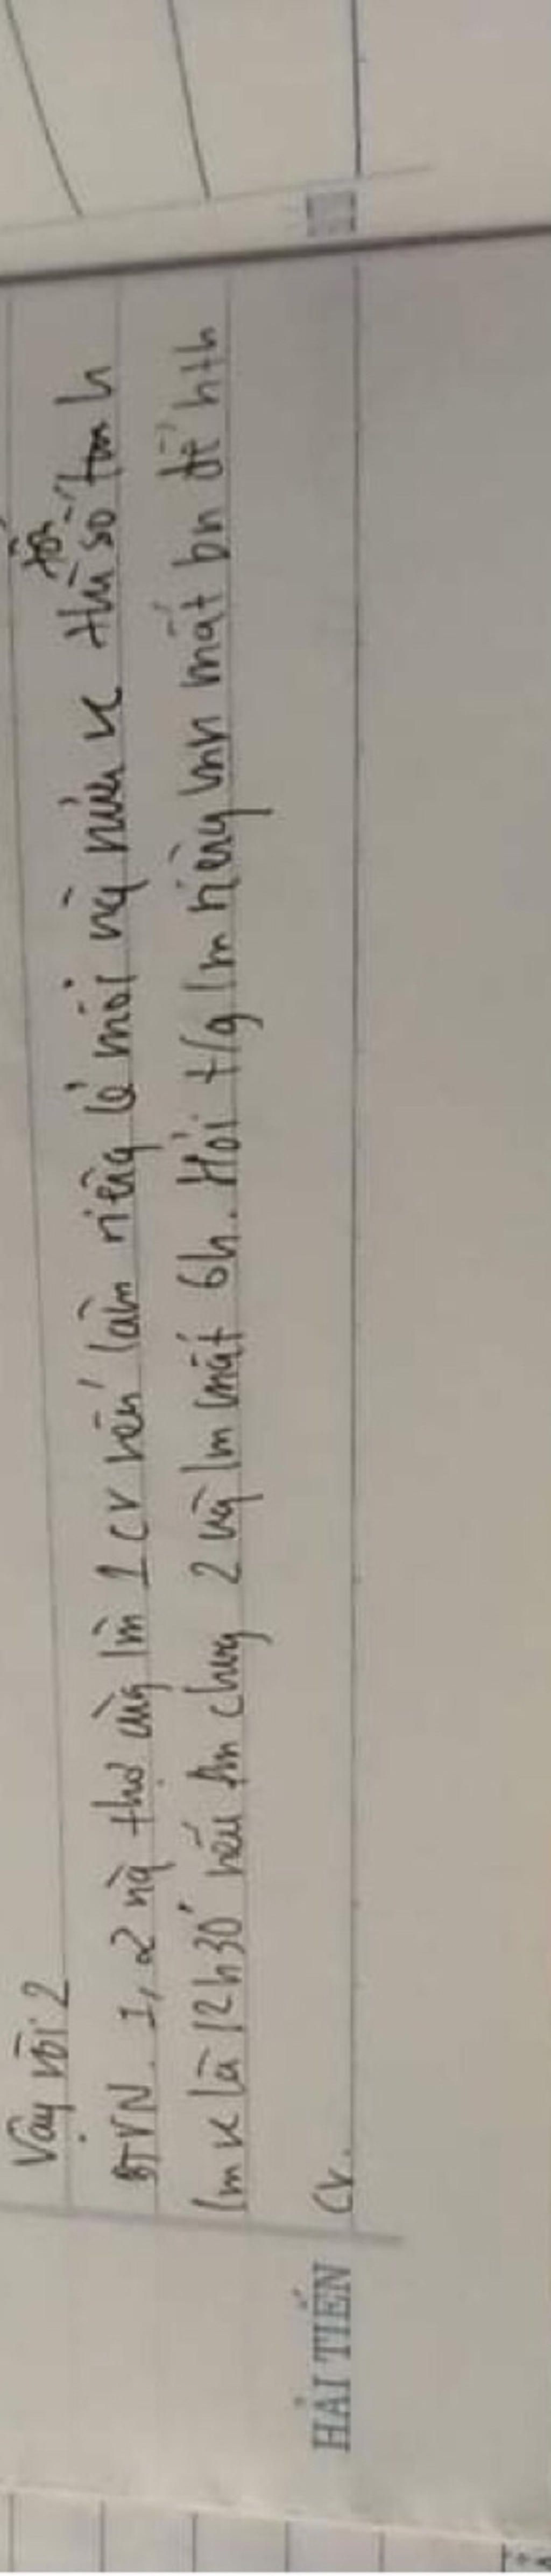 Vậy vòi 2
BTVN. 1, 2 ng thợ cùng làm 1 cv nếu làm riêng lẻ mỗi ng nửa x thì tổng số tm h
lm x là 12h30' nếu lm chung 2 ng lm mất 6h. Hỏi t/g lm riêng mất bn để hth
cv.
HẢI TIẾN